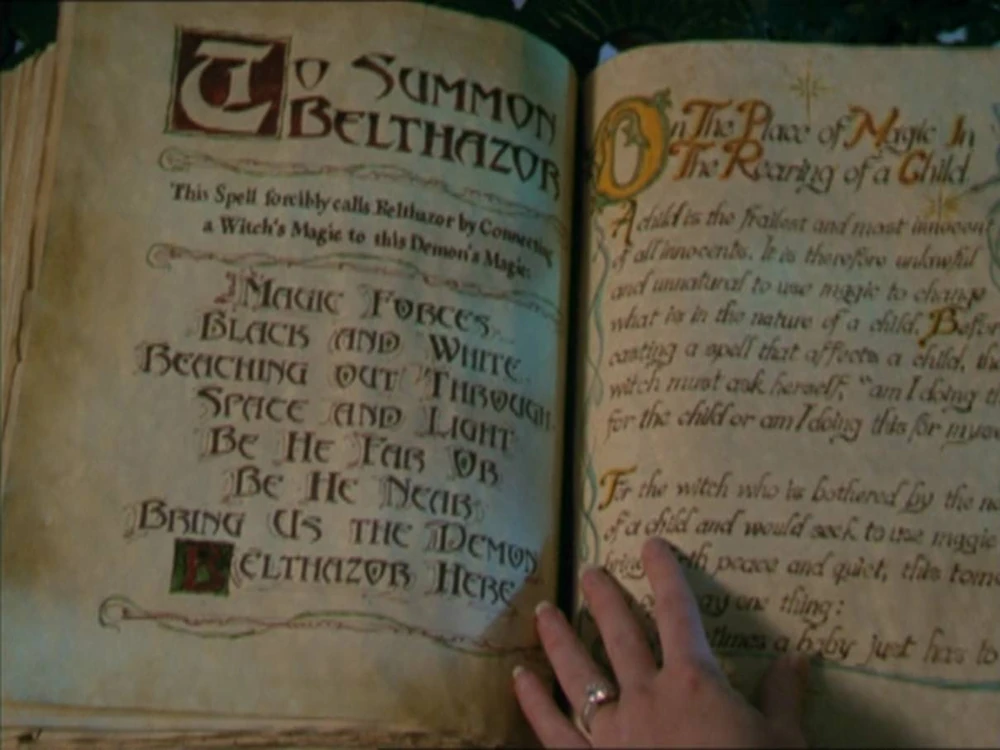 To Summon
Belthazor
This Spell forcibly calls Belthazor by Connecting
a Witch's Magic to this Demon's Magic:
Magic Forces
Black and White
Reaching out Through
Space and Light
Be He Far Or
Be He Near
Bring Us the Demon
Belthazor Here
On The Place of Magic In
The Rearing of a Child
A child is the frailest and most innocent
of all innocents. It is therefore unlawful
and unnatural to use magic to change
what is in the nature of a child. Before
casting a spell that affects a child, the
witch must ask herself, "am I doing
for the child or am I doing this for
For the witch who is bothered by the
of a child and would seek to use magic
peace and quiet, this tome
one thing:
a baby just has to